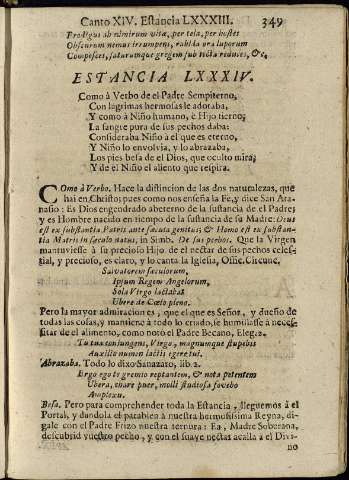 Canto XIV. Estancia LXXXIII. 349
Prodigus ab nimirum vitæ, per tela, per hostes
Obscurum nemus irrumpens, rabida ora luporum
Compesces, saturumque gregem sub tecta reduces, &c.
ESTANCIA LXXXIV.
Como à Verbo de el Padre Sempiterno,
Con lagrimas hermosas le adoraba,
Y como à Niño humano, è Hijo tierno,
La sangre pura de sus pechos daba:
Consideraba Niño à el que es eterno,
Y Niño lo envolvia, y lo abrazaba,
Los pies besa de el Dios, que oculto mira,
Y de el Niño el aliento que respira.
Como à Verbo. Hace la distincion de las dos naturalezas, que
hai en Christo; pues como nos enseña la Fe, y dice San Ata-
nasio: Es Dios engendrado abeterno de la sustancia de el Padre
y es Hombre nacido en tiempo de la sustancia de su Madre: Deus
est ex substantia Patris ante sæcula genitus; & Homo est ex substan-
tia Matris in sæculo natus, in Simb. De sus pechos. Que la Virgen
mantuviesse à su precioso Hijo de el nectar de sus pechos celes-
ial, y precioso, es claro, y lo canta la Iglesia, Offic. Circunc.
Salvatorem sæculorum,
Ipsum Regem Angelorum,
Sola Virgo lactabat
Ubere de Cœlo pleno.
Pero la mayor admiracion es, que el que es Señor, y dueño de
todas las cosas, y mantiene à todo lo criado, se humillasse à neces-
sitar de el alimento, como notò el Padre Becano, Eleg. 2.
Tu tua conjungens, Virgo, magnumque stupebis
Auxilio numen lactis egere tui.
Abrazaba. Todo lo dixo Sanazaro, lib. 2.
Ergo ego te gremio reptantem, & nota petentem
Ubera, chare puer, molli studiosa fovebo
Amplexu.
Besa. Pero para comprehender toda la Estancia, lleguemos à el
Portal, y dandola el parabien à nuestra hermosissima Reyna, di-
gale con el Padre Frizo nuestra ternura: Ea, Madre Soberana,
descubrid vuestro pecho, y con el suave nectas acalla a el Divi-
no